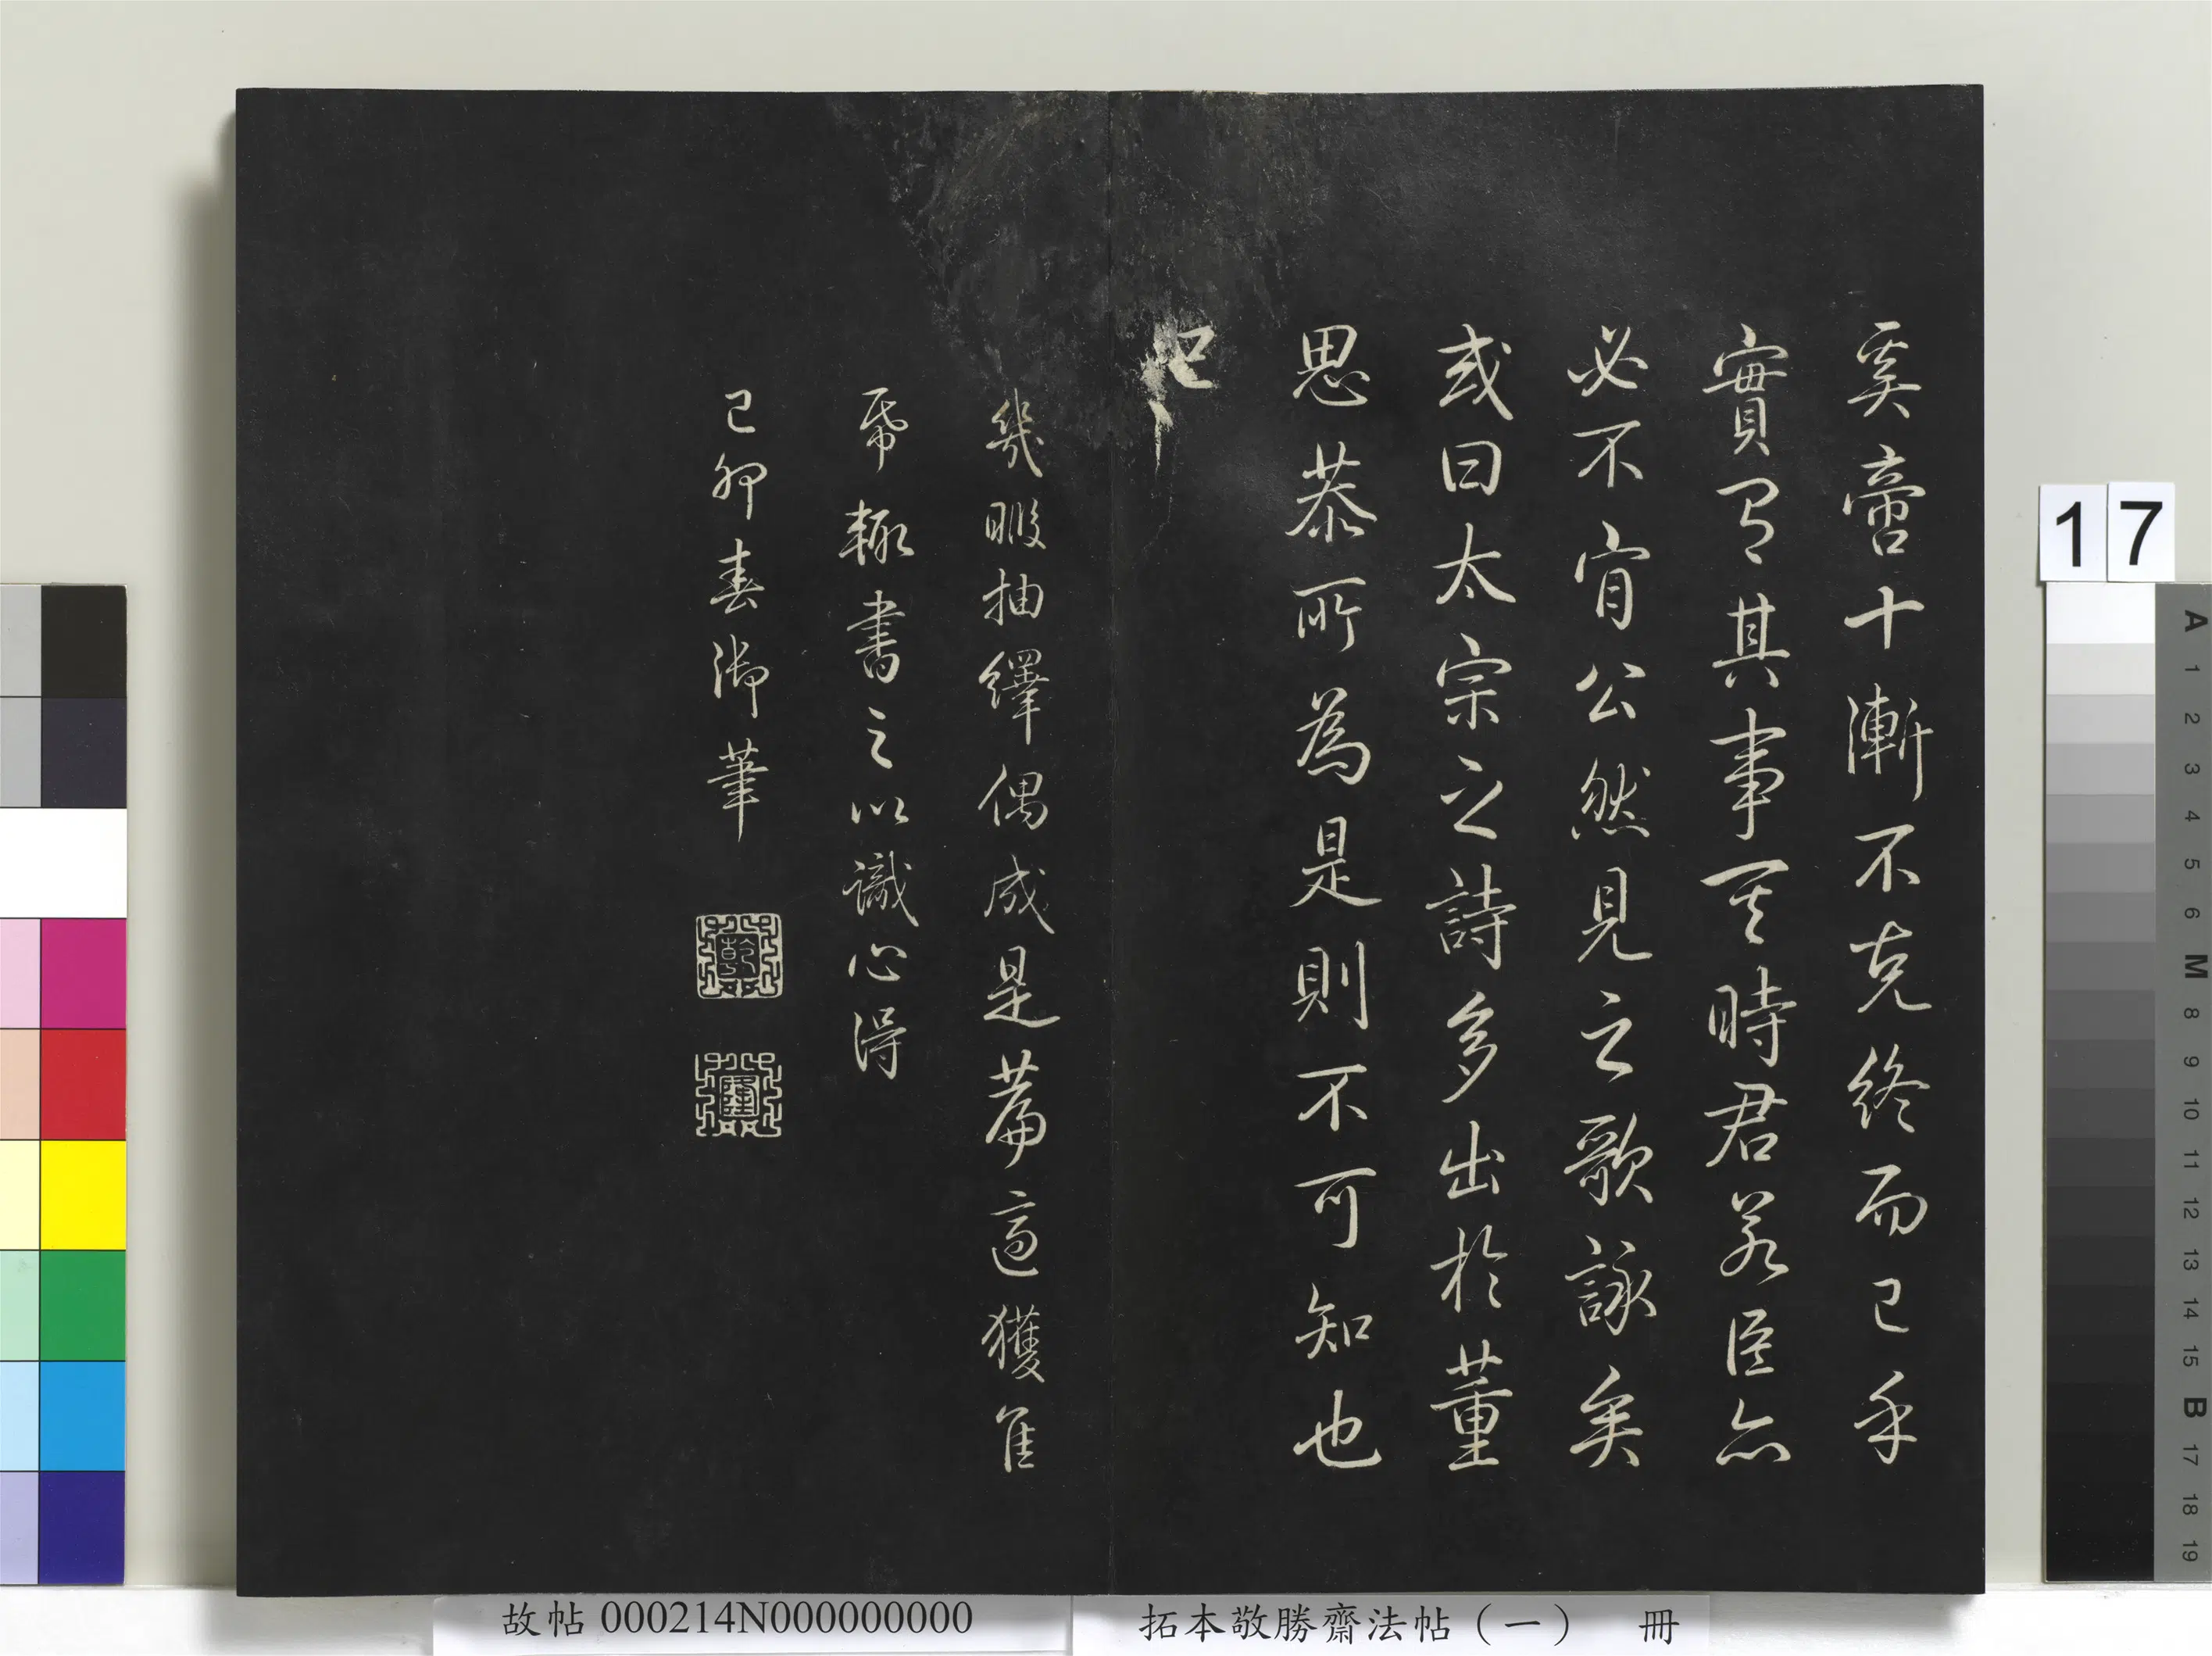 奚啻十漸不克終而已乎
實有其事其時君若臣亦
必不肯公然見之歌詠矣
或曰太宗之詩多出於董
思恭所為是則不可知也
已
幾暇抽繹偶成是篇適獲佳
帋輒書之以識心得
己卯春御筆
乾
隆
17
A 1 2 3 4 5 6 M 8 9 10 11 12 13 14 15 B 17 18 19
拓本敬勝齋法帖（一） 冊
故帖 000214N000000000